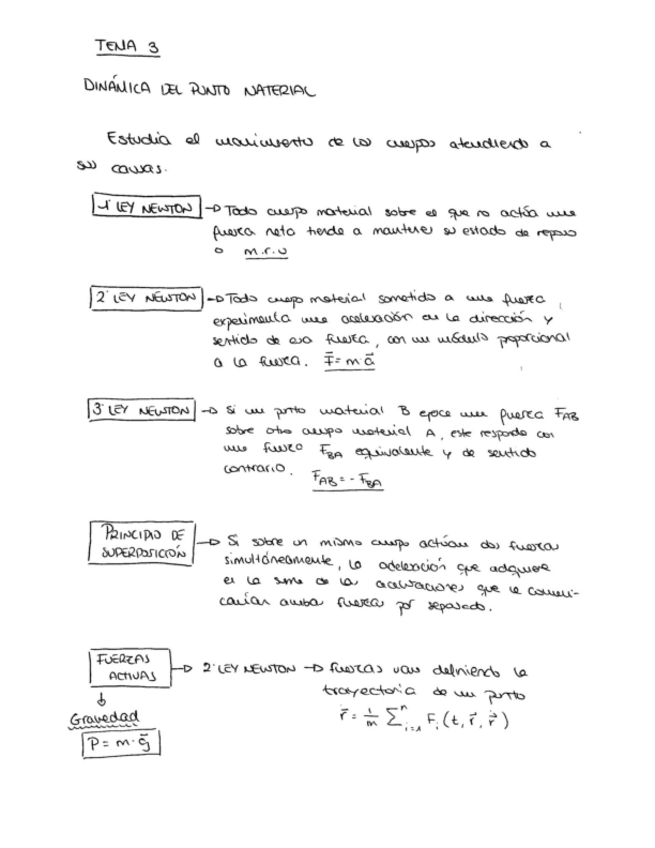 TEMA 3
DINÁMICA DEL PUNTO MATERIAL
Estudia el movimiento de los cuerpos atendiendo a
sus causas.
1ª LEY NEWTON → Todo cuerpo material sobre el que no actúa una
fuerza neta tiende a mantener su estado de reposo
o m.r.u
2ª LEY NEWTON → Todo cuerpo material sometido a una fuerza,
experimenta una aceleración en la dirección y
sentido de esa fuerza, con un módulo proporcional
a la fuerza. F⃗ = m·a⃗
3ª LEY NEWTON → Si un punto material B ejerce una fuerza F_AB
sobre otro cuerpo material A, este responde con
una fuerza F_BA equivalente y de sentido
contrario. F_AB = - F_BA
PRINCIPIO DE
SUPERPOSICIÓN → Si sobre un mismo cuerpo actúan dos fuerzas
simultáneamente, la aceleración que adquiere
es la suma de las aceleraciones que le comuni-
carían ambas fuerzas por separado.
FUERZAS
ACTIVAS → 2ª LEY NEWTON → fuerzas van definiendo la
trayectoria de un punto
r̈⃗ = 1/m Σⁿᵢ₌₁ Fᵢ (t, r⃗, ṙ⃗)
↓
Gravedad
P = m·g⃗